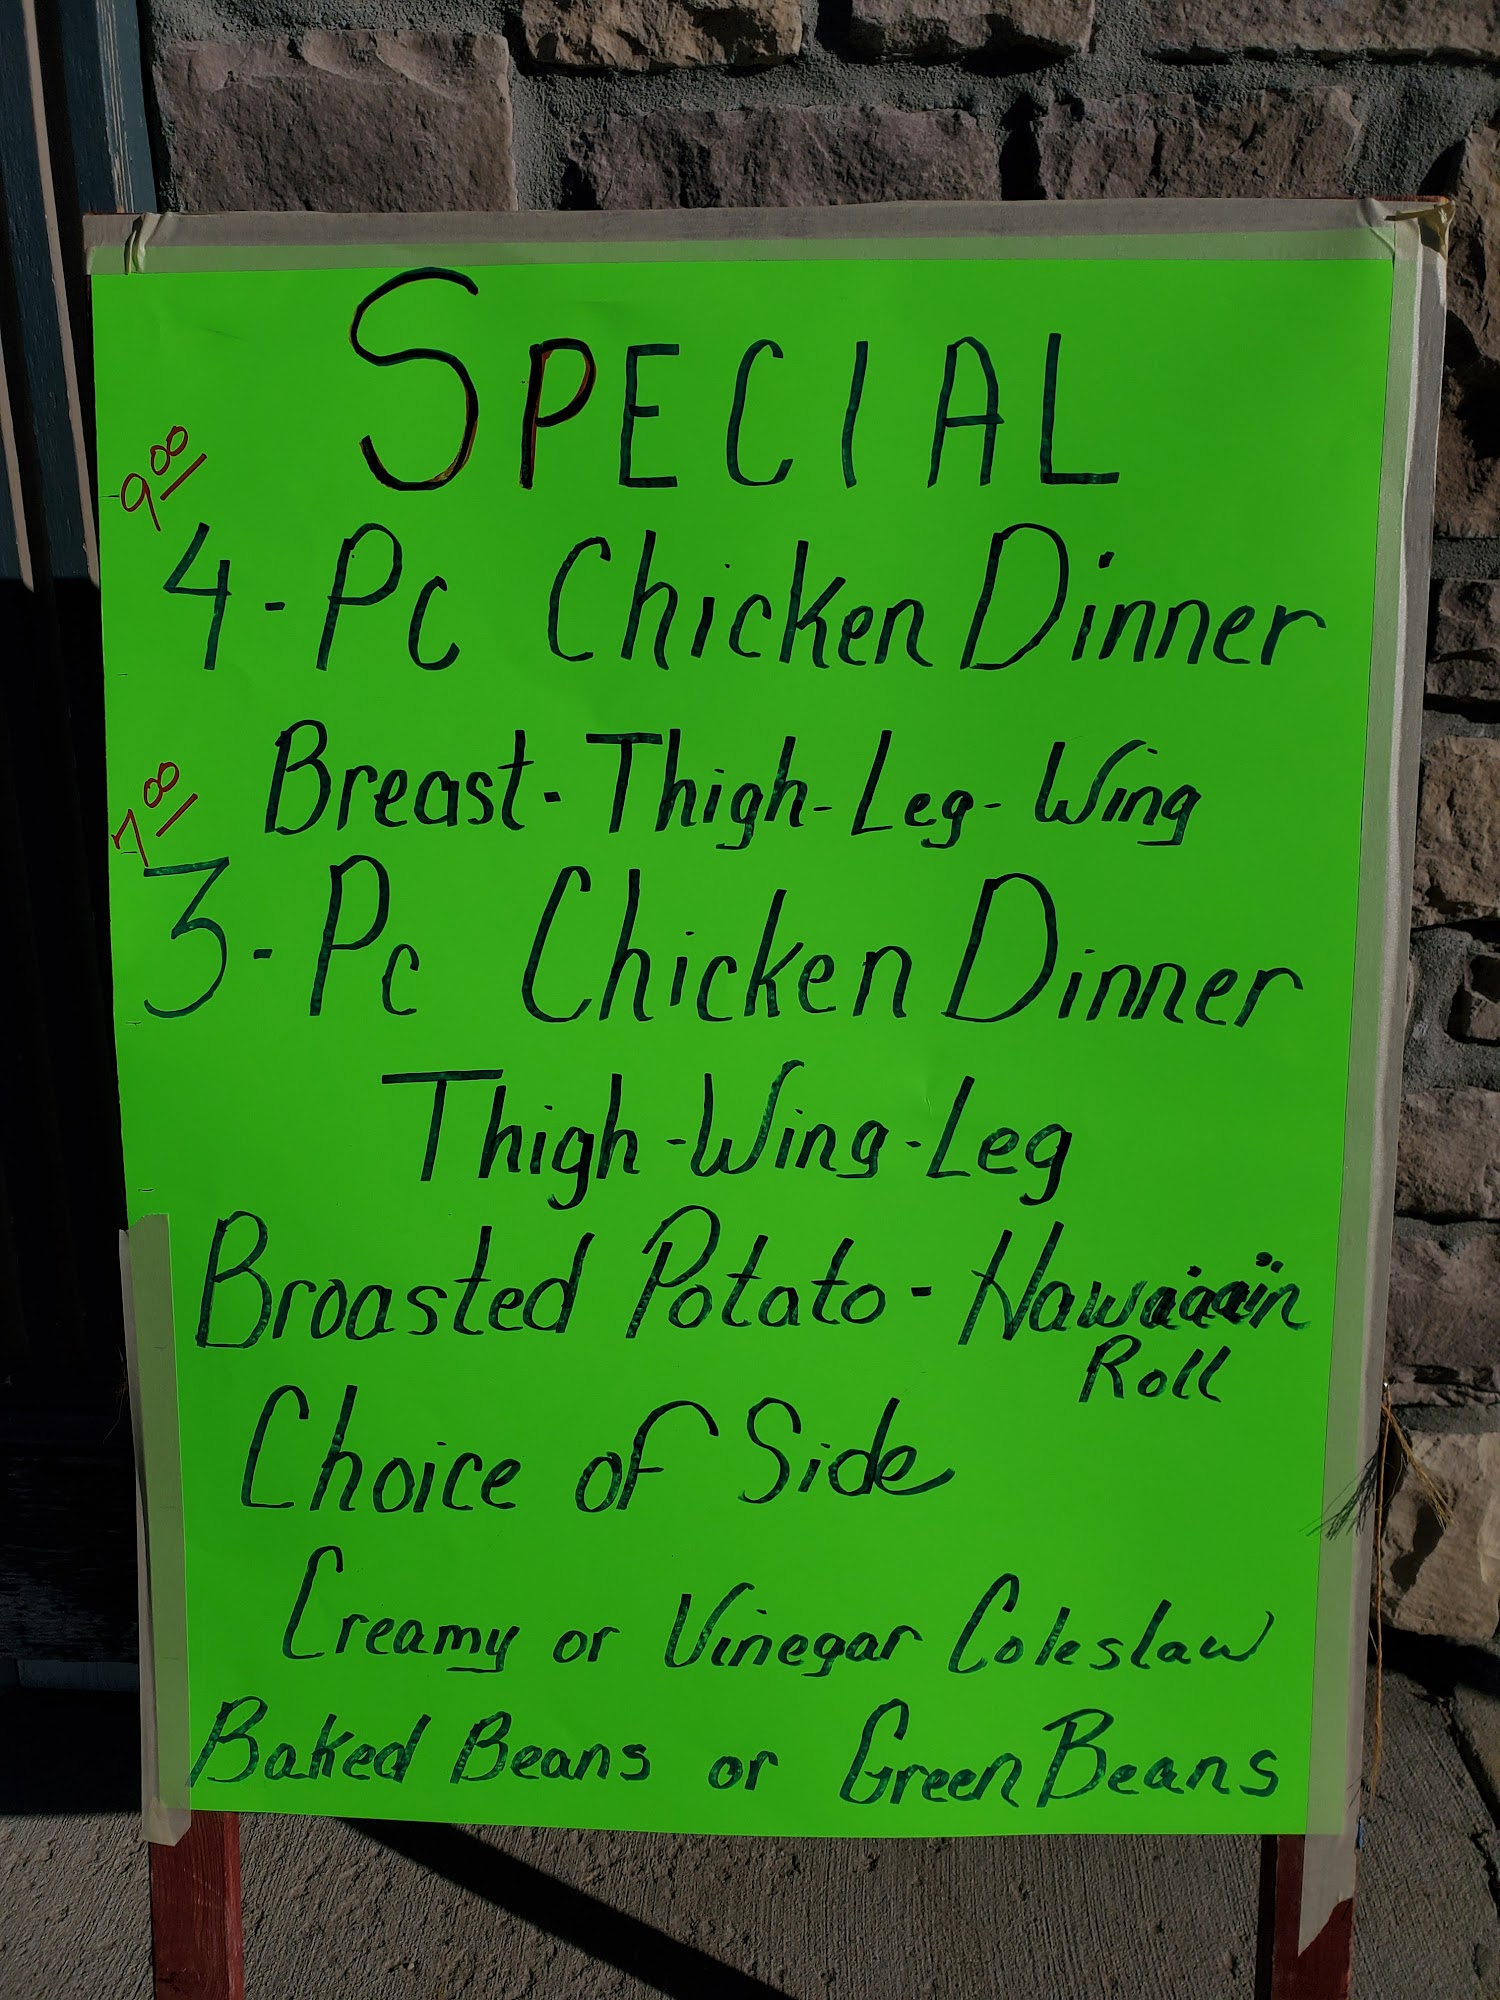 SPECIAL
9.00
4-Pc Chicken Dinner
Breast-Thigh-Leg-Wing
7.00
3-Pc Chicken Dinner
Thigh-Wing-Leg
Broasted Potato-Hawaiaain
Roll
Choice of Side
Creamy or Vinegar Coleslaw
Baked Beans or Green Beans